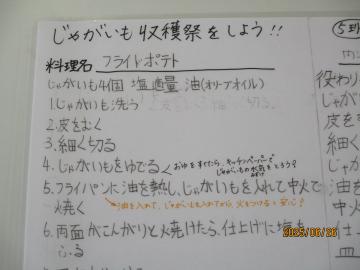 じゃがいも収穫祭をしよう!!
料理名 フライドポテト
じゃがいも4個 塩適量 油(オリーブオイル)
1.じゃがいも洗う
2.皮をむく
3.細く切る
4.じゃがいもをゆでる
おゆをすてたら、キッチンペーパーで
じゃがいもの水気をとろう?
5.フライパンに油を熱し、じゃがいもを入れて中火で
焼く
油を入れて、じゃがいも入れてから、火をつけると安心?
6.両面がこんがりと焼けたら、仕上げに塩を
ふる
5班
役わり
じゃが
皮を
細く
じゃ
じ
仕上
皿
2025/06/26